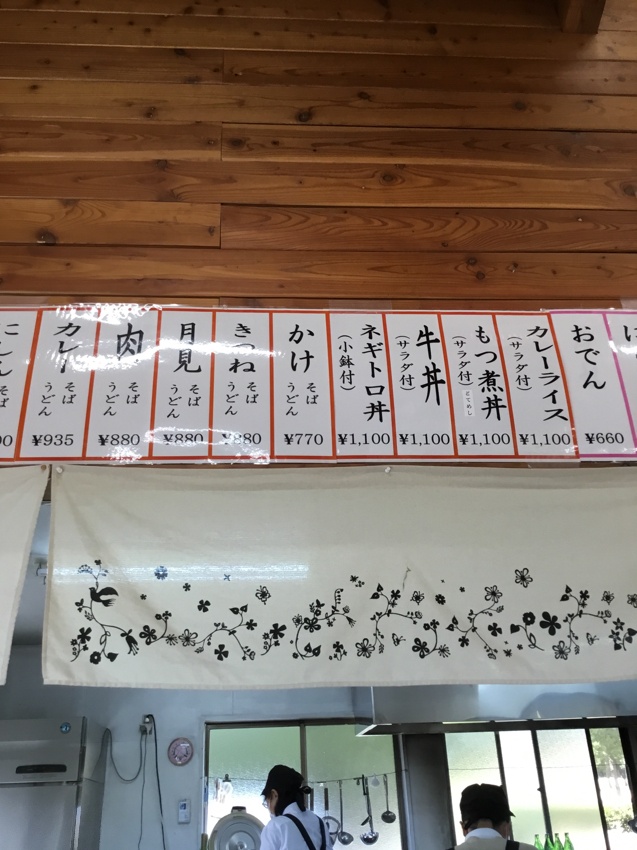 おでん
¥660
カレーライス
(サラダ付)
¥1,100
もつ煮丼
(サラダ付)
¥1,100
牛丼
(サラダ付)
¥1,100
ネギトロ丼
(小鉢付)
¥1,100
かけ
そば
うどん
¥770
きつね
そば
うどん
¥880
月見
そば
うどん
¥880
肉
そば
うどん
¥880
カレー
そば
うどん
¥935
にしん
そば
うどん